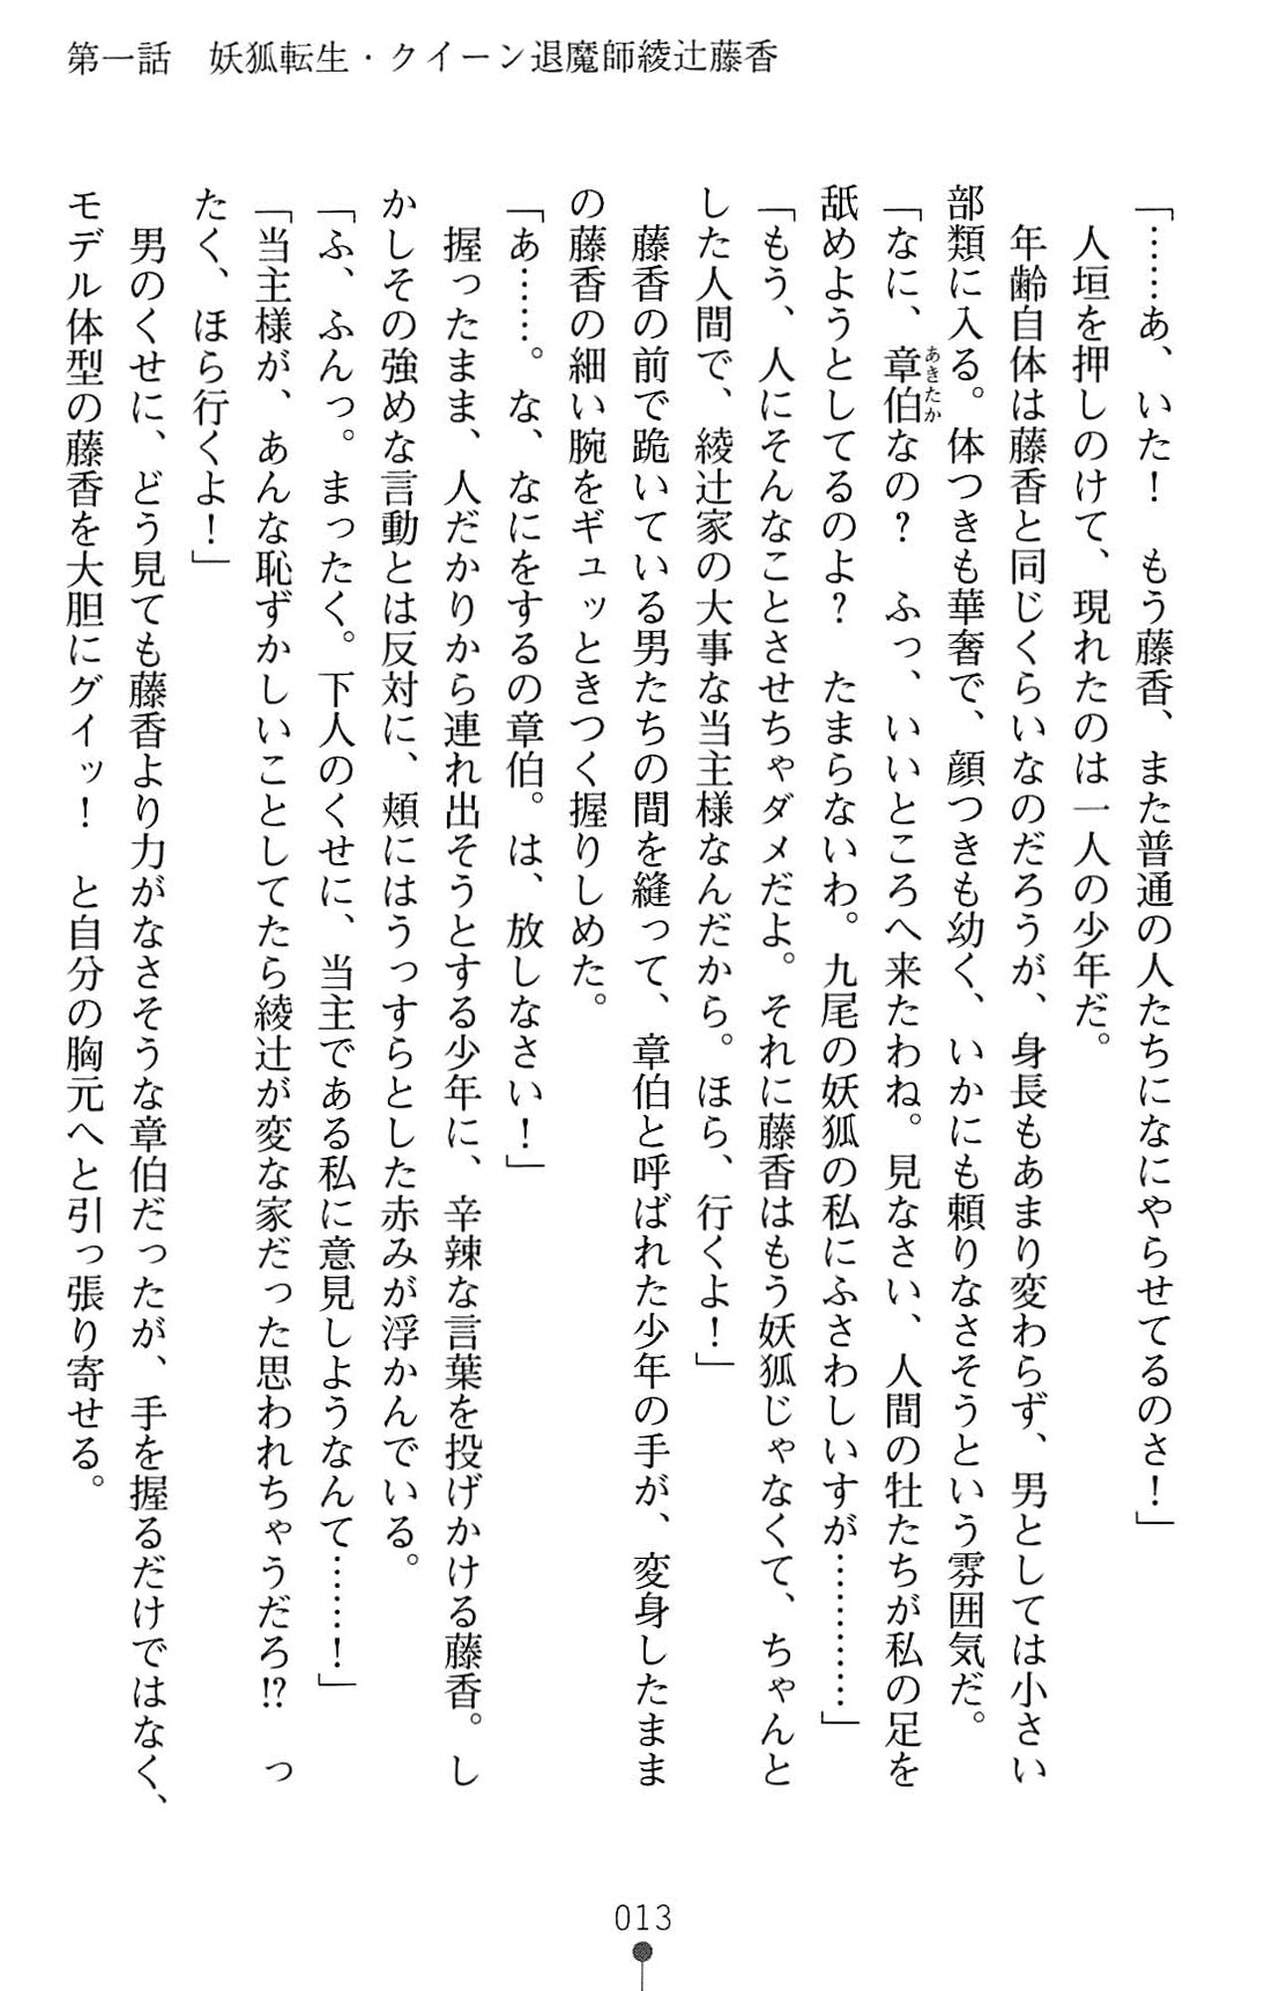 第一話　妖狐転生・クイーン退魔師綾辻藤香
「……あ、いた！　もう藤香、また普通の人たちになにやらせてるのさ！」
　人垣を押しのけて、現れたのは一人の少年だ。
　年齢自体は藤香と同じくらいなのだろうが、身長もあまり変わらず、男としては小さい
部類に入る。体つきも華奢で、顔つきも幼く、いかにも頼りなさそうという雰囲気だ。
「なに、章伯なの？　ふっ、いいところへ来たわね。見なさい、人間の牡たちが私の足を
あきたか
舐めようとしてるのよ？　たまらないわ。九尾の妖狐の私にふさわしいすが…………」
「もう、人にそんなことさせちゃダメだよ。それに藤香はもう妖狐じゃなくて、ちゃんと
した人間で、綾辻家の大事な当主様なんだから。ほら、行くよ！」
　藤香の前で跪いている男たちの間を縫って、章伯と呼ばれた少年の手が、変身したまま
の藤香の細い腕をギュッときつく握りしめた。
「あ……。な、なにをするの章伯。は、放しなさい！」
　握ったまま、人だかりから連れ出そうとする少年に、辛辣な言葉を投げかける藤香。し
かしその強めな言動とは反対に、頬にはうっすらとした赤みが浮かんでいる。
「ふ、ふんっ。まったく。下人のくせに、当主である私に意見しようなんて……！」
「当主様が、あんな恥ずかしいことしてたら綾辻が変な家だった思われちゃうだろ!?　っ
たく、ほら行くよ！」
　男のくせに、どう見ても藤香より力がなさそうな章伯だったが、手を握るだけではなく、
モデル体型の藤香を大胆にグイッ！　と自分の胸元へと引っ張り寄せる。
013